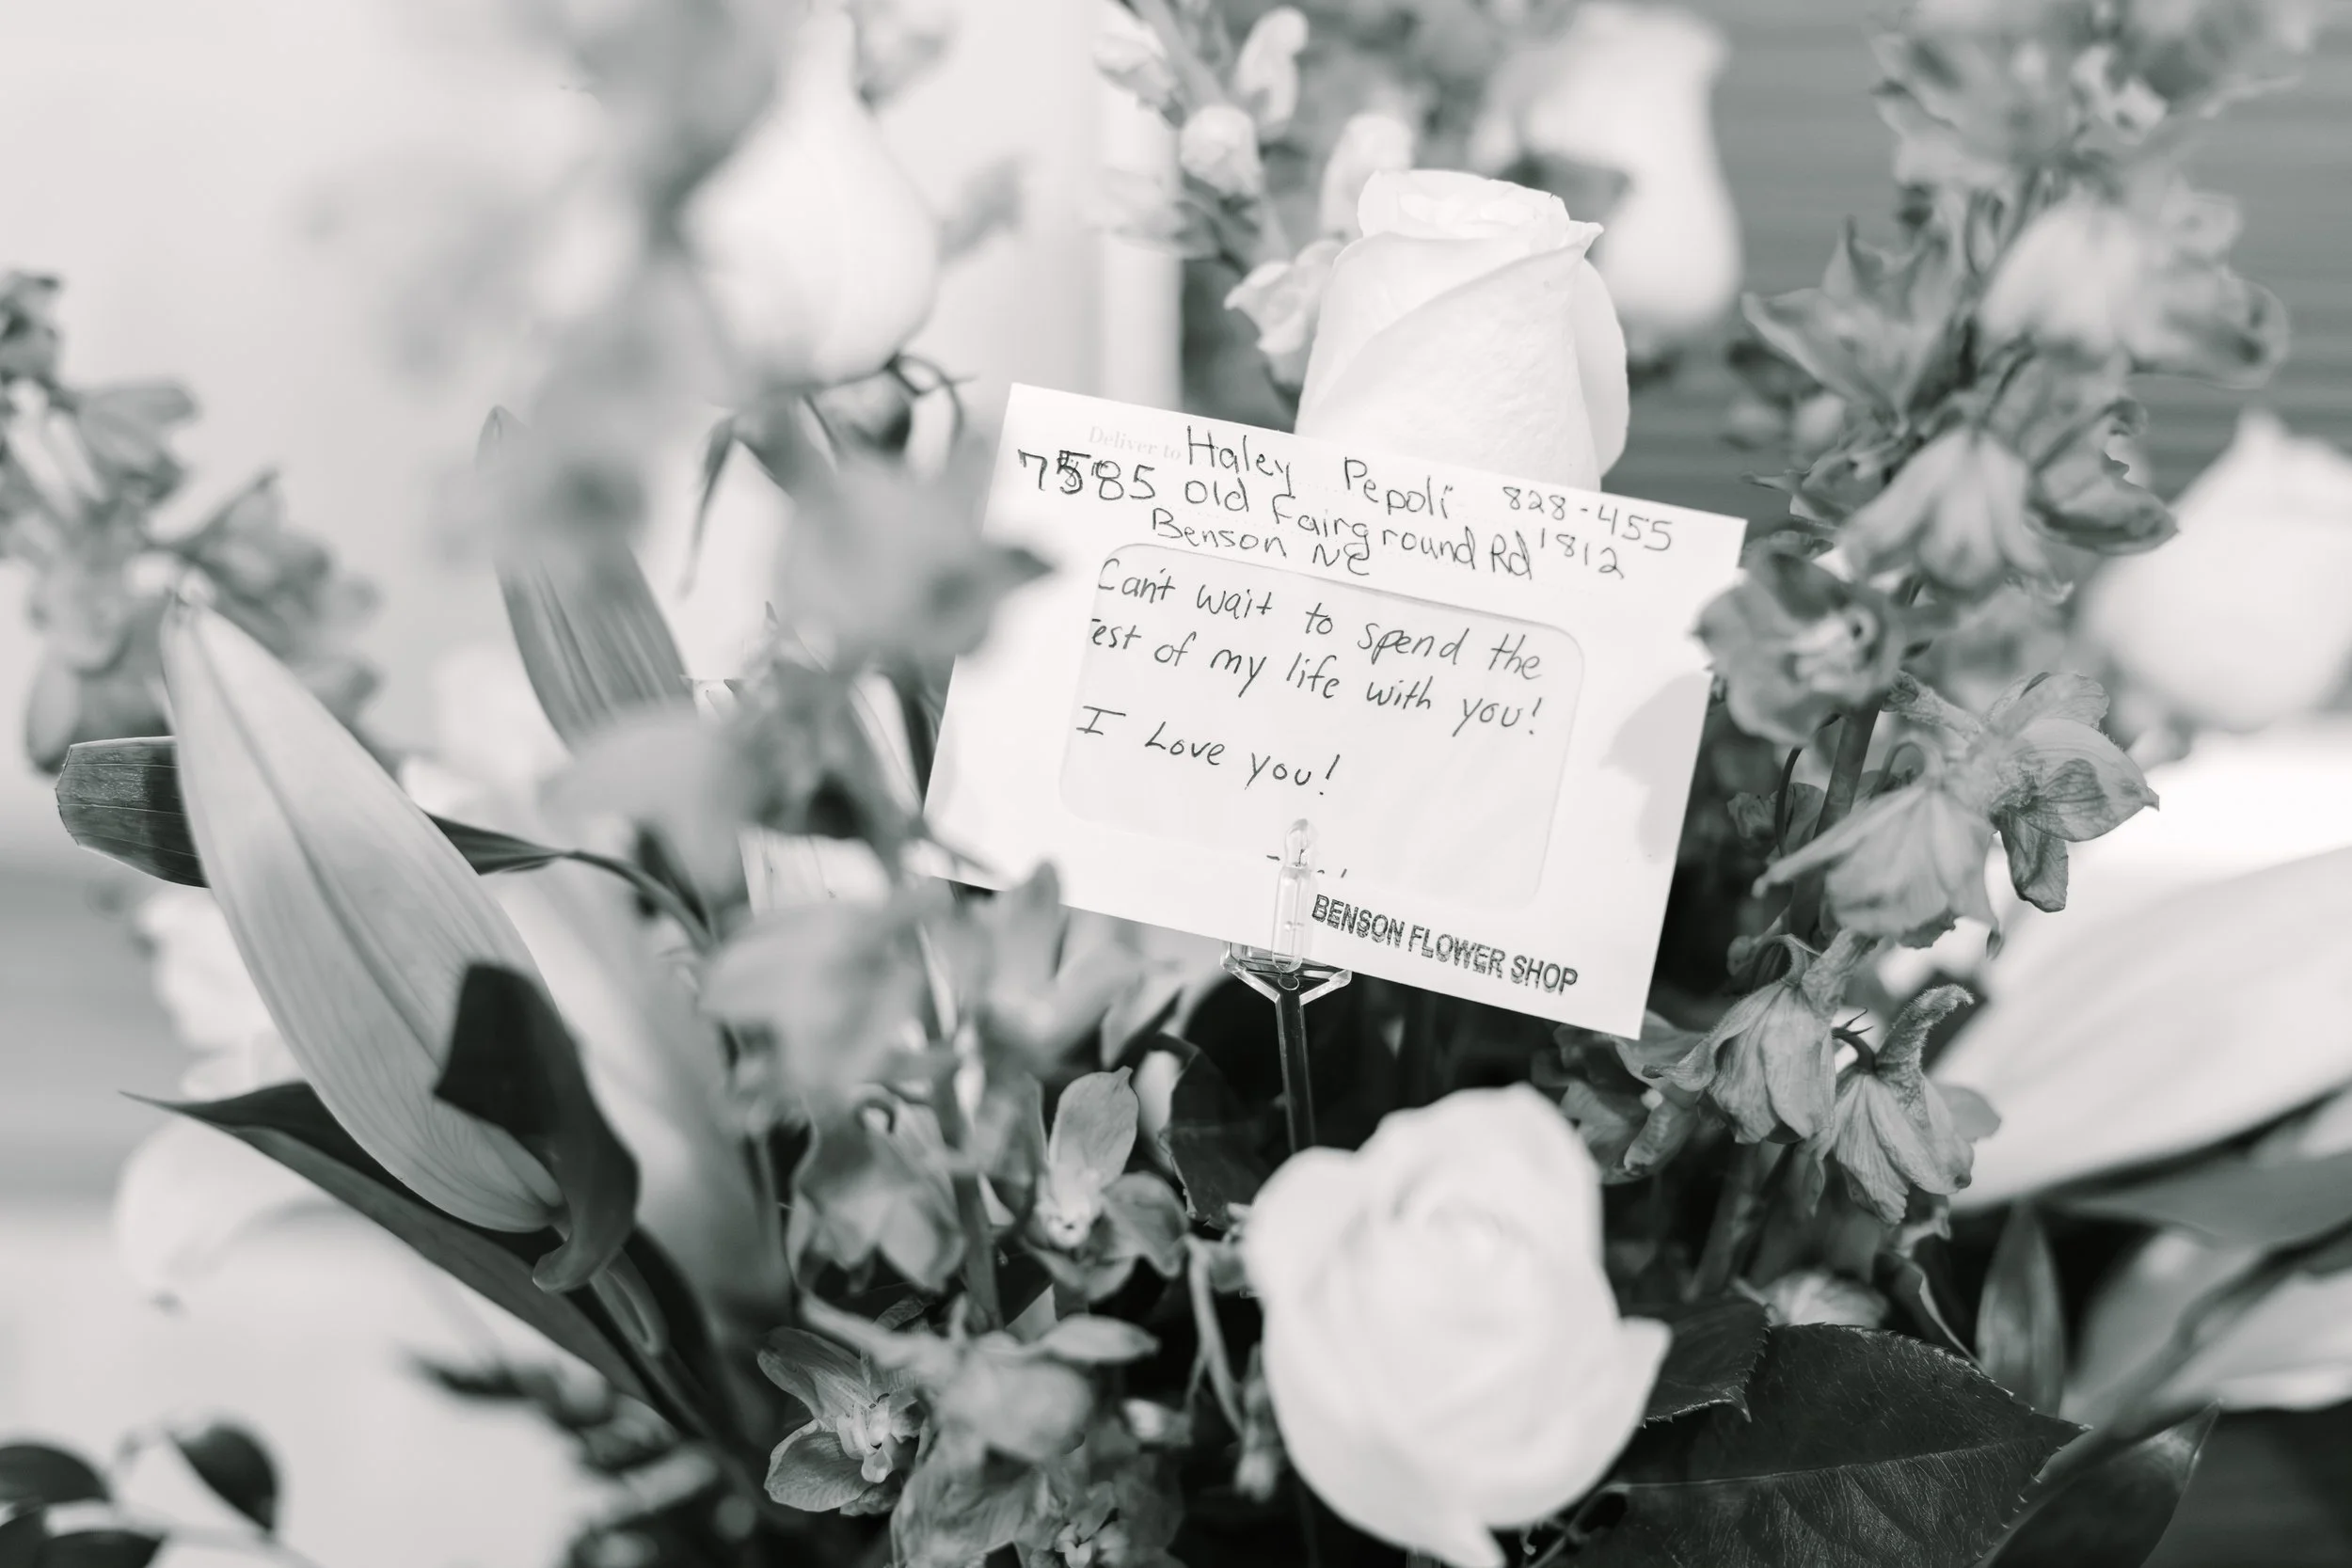 Deliver to Haley Pepoli 828-455
7585 Old Fairground Rd 1812
Benson NC
Can't wait to spend the
rest of my life with you!
I Love you!
BENSON FLOWER SHOP